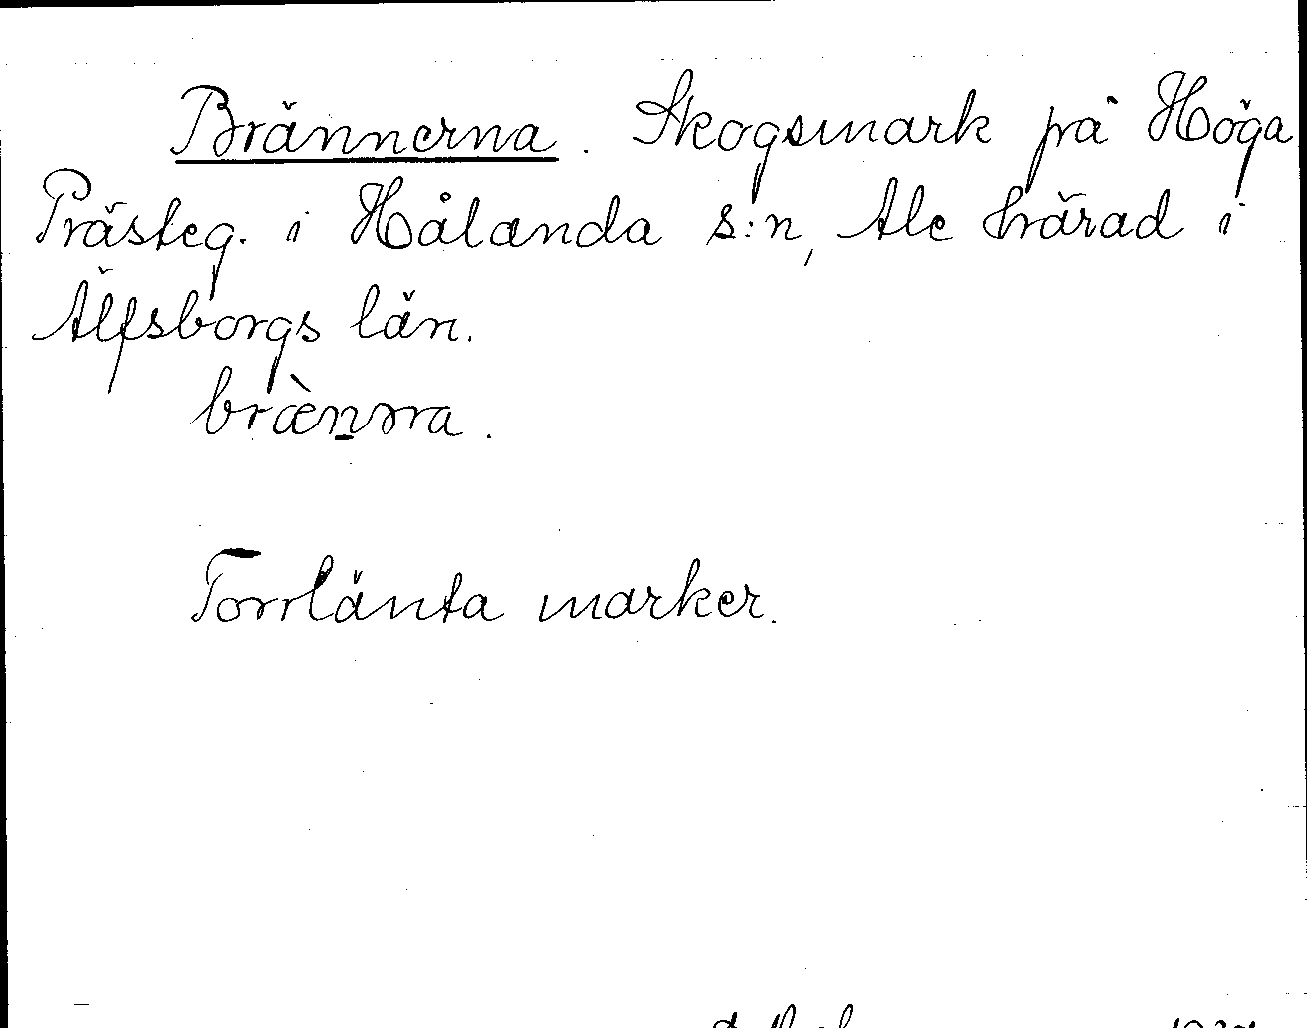 Brännerna. Skogsmark på Höga
Prästeg. i Hålanda s:n, Ale härad i
Älfsborgs län.
Torrlänta marker.